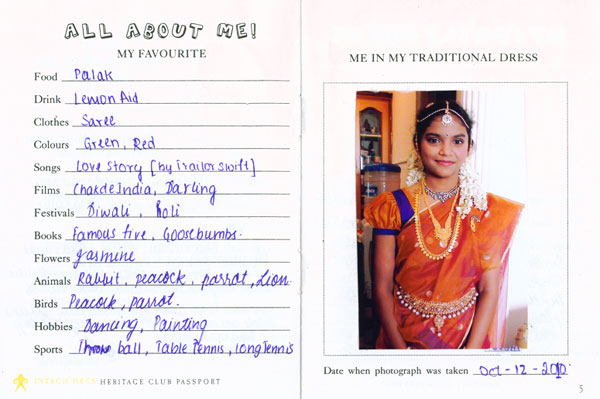 ALL ABOUT ME!
MY FAVOURITE
Food Palak
Drink Lemon Aid
Clothes Saree
Colours Green, Red
Songs Love story [by Trailor swift]
Films Chakde India, Darling
Festivals Diwali, Holi
Books Famous five, Goosebumbs.
Flowers Jasmine
Animals Rabbit, peacock, parrot, Lion.
Birds Peacock, parrot.
Hobbies Dancing, Painting
Sports Throw ball, Table Tennis, long Tennis
INTACH HECS HERITAGE CLUB PASSPORT
ME IN MY TRADITIONAL DRESS
Date when photograph was taken Oct-12-2010
5